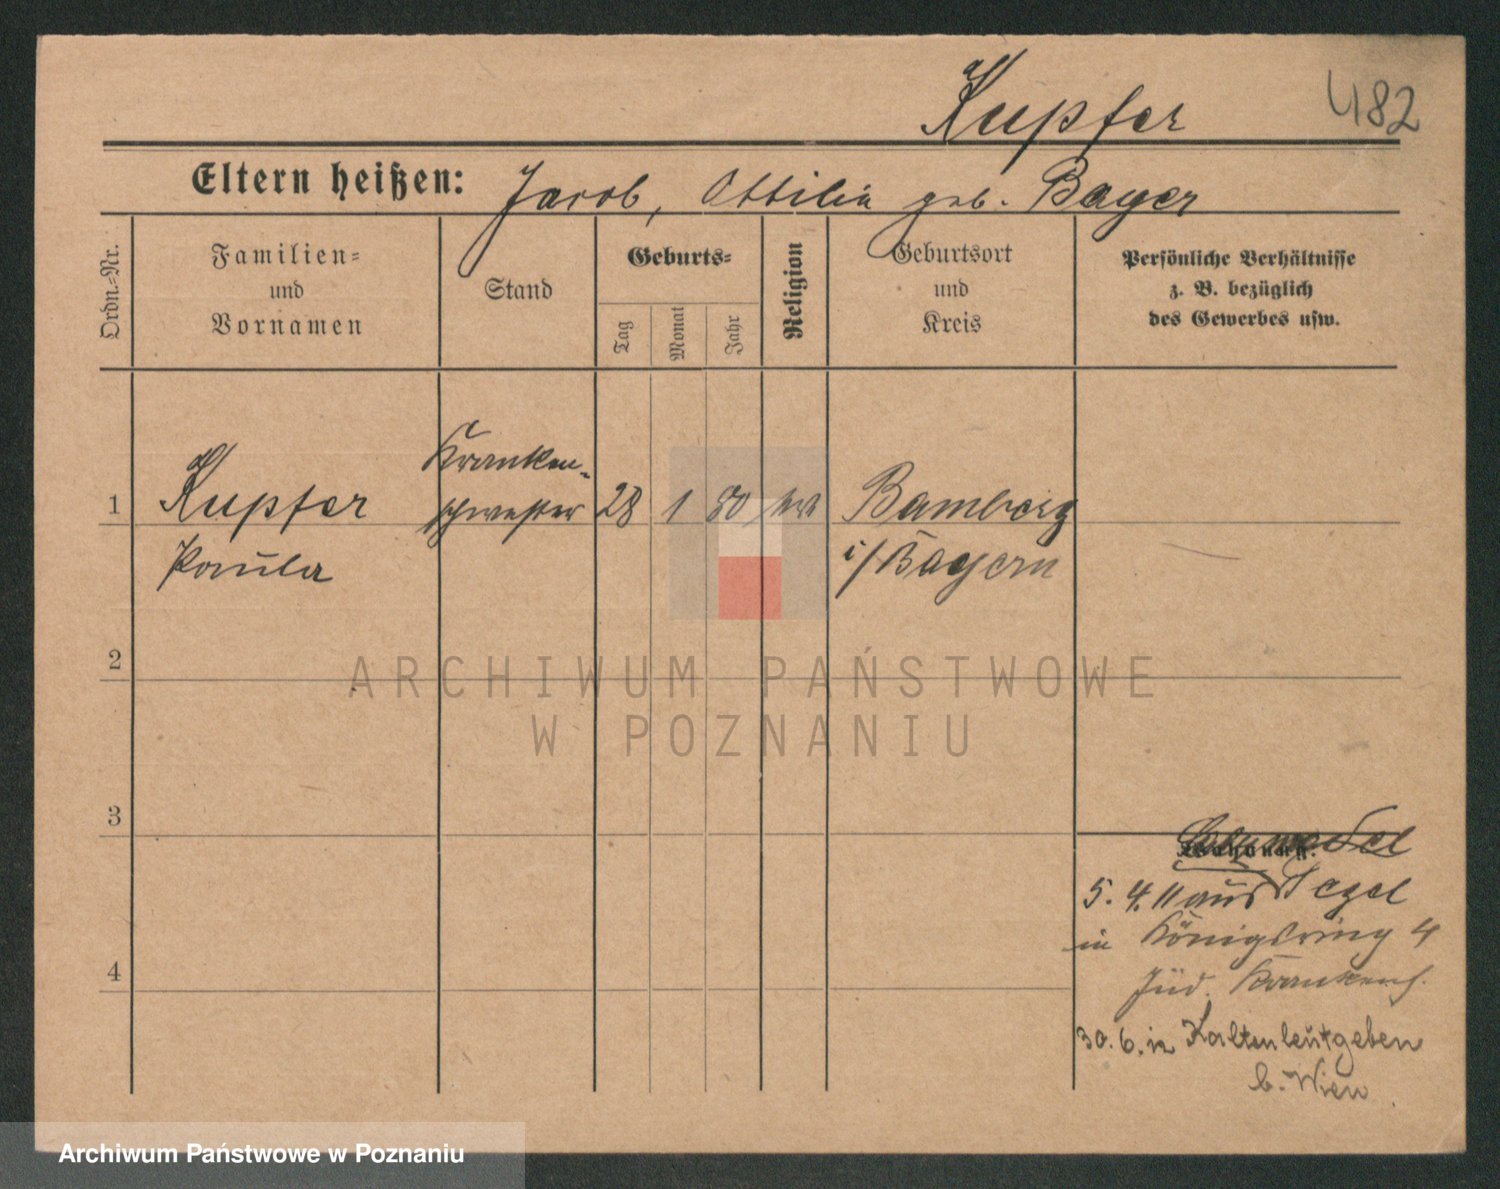 Kupfer 482
Eltern heißen: Jacob, Ottilie geb. Bayer
Ordn.-Nr.
Familien-
und
Vornamen
Stand
Geburts-
Tag
Monat
Jahr
Religion
Geburtsort
und
Kreis
Persönliche Verhältnisse
z. B. bezüglich
des Gewerbes usw.
1 Kupfer
Paula
Kranken-
schwester
28 1 80
Bamberg
i/Bayern
2
3
4
Wohnung:
5. 4. 11 aus Tegel
in Königsring 4
Jüd. Krankenh.
30. 6. in Kaltenleutgeben
b. Wien
ARCHIWUM PAŃSTWOWE
W POZNANIU
Archiwum Państwowe w Poznaniu